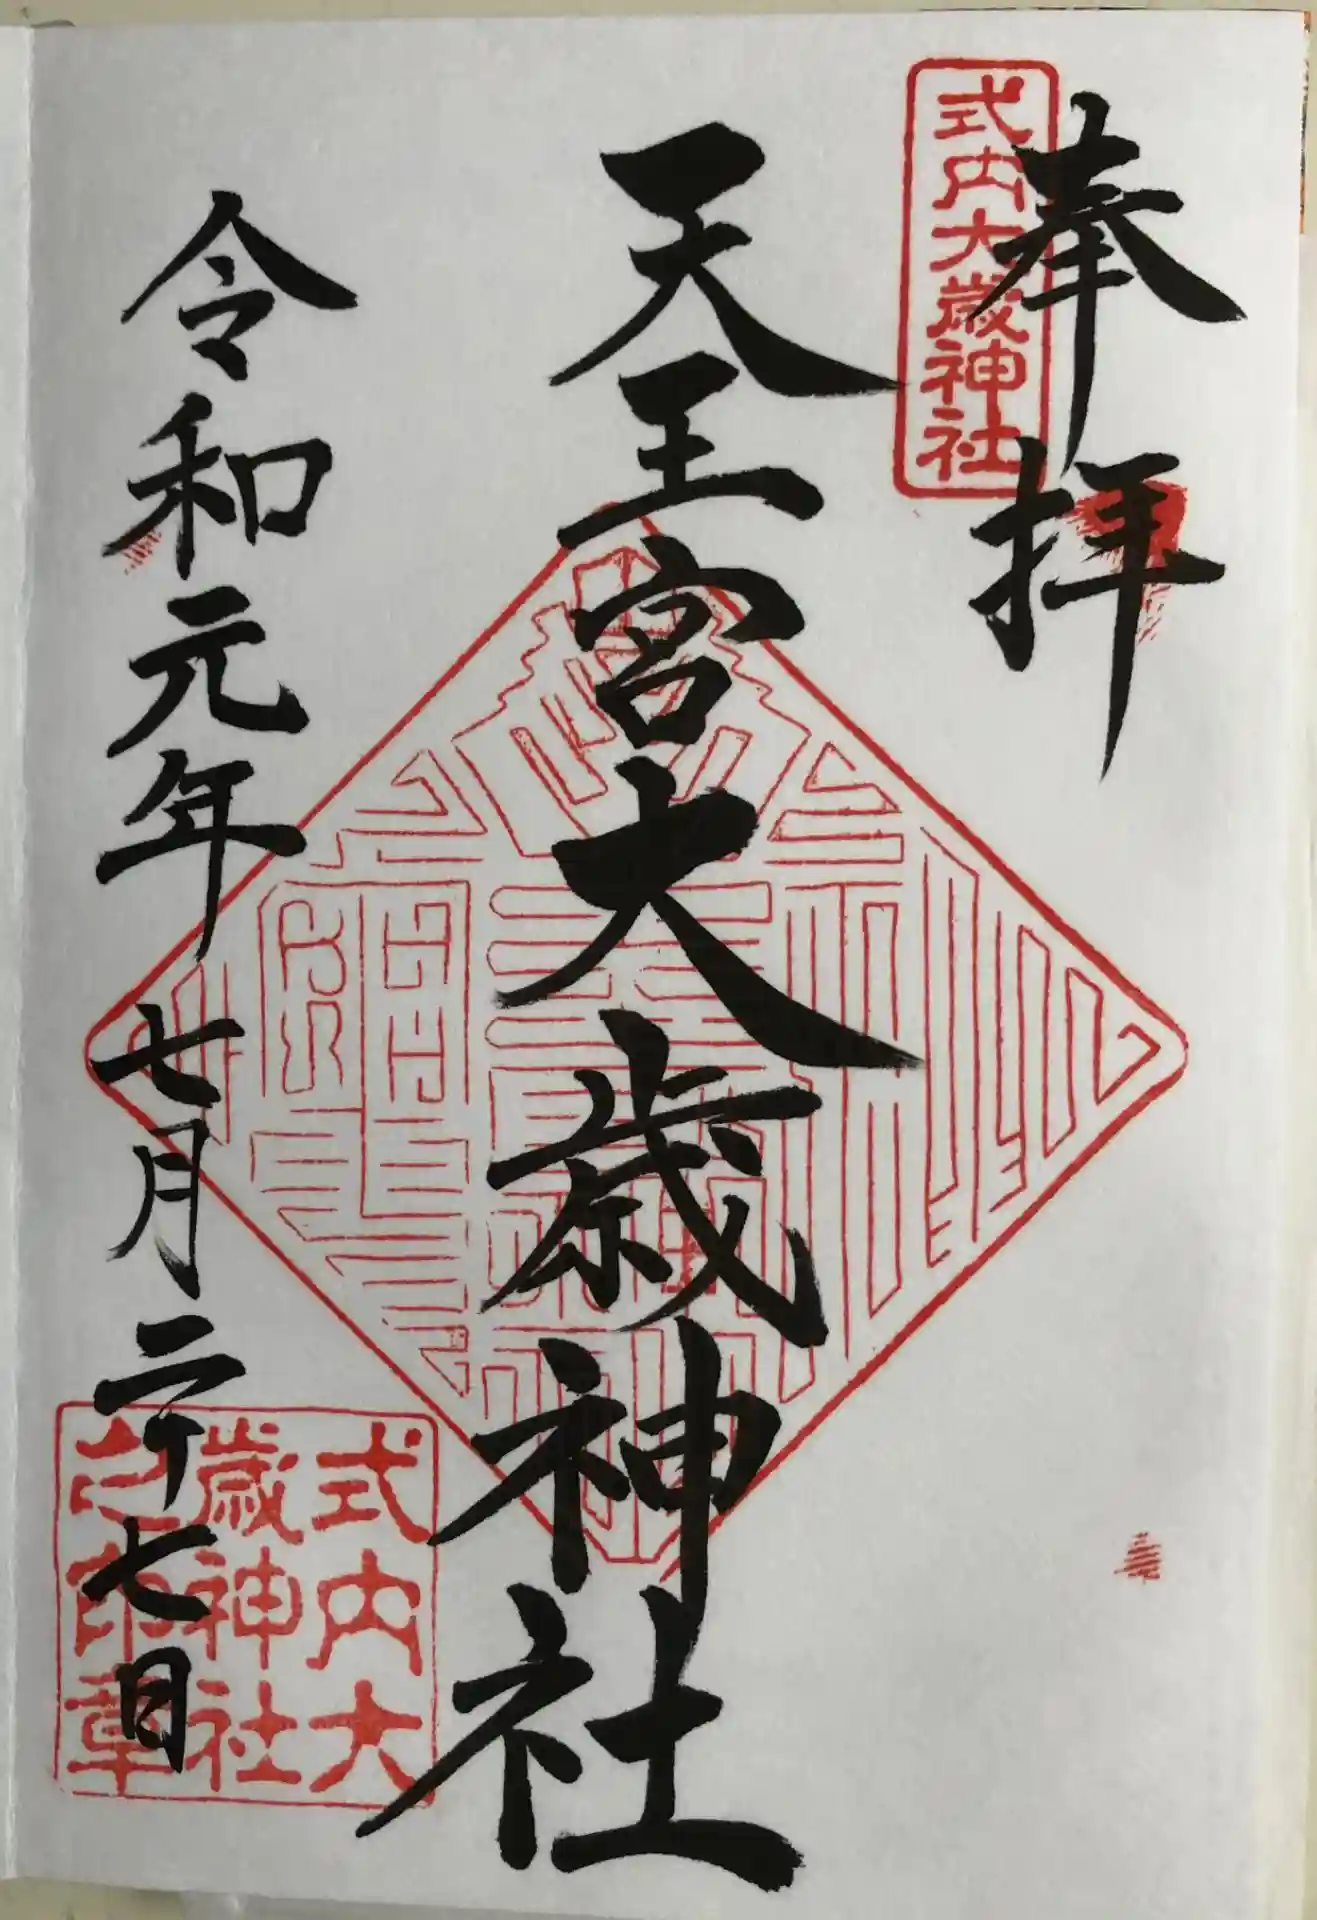 奉拝
式内大歳神社
天王宮大歳神社
令和元年七月二十七日
式内大
歳神社
之印章